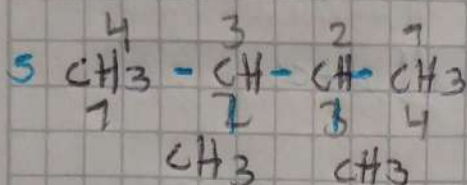 4 3 2 1
5 CH3 - CH - CH - CH3
1 2 3 4
CH3 CH3